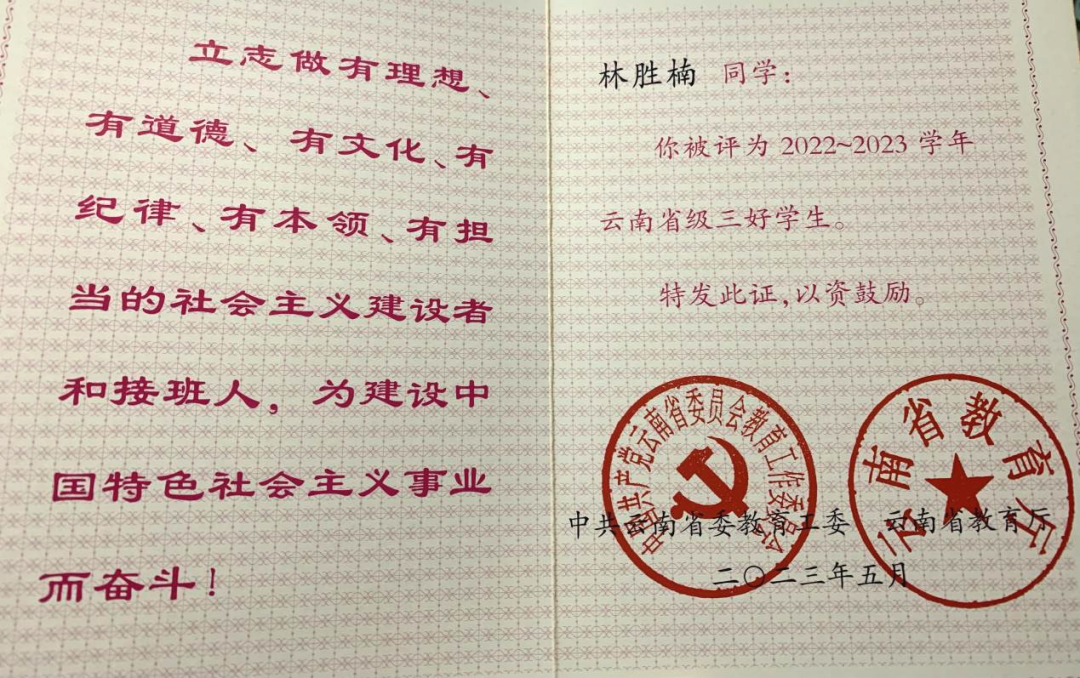 立志做有理想、
有道德、有文化、有
纪律、有本领、有担
当的社会主义建设者
和接班人，为建设中
国特色社会主义事业
而奋斗！
林胜楠 同学：
你被评为 2022~2023 学年
云南省级三好学生。
特发此证，以资鼓励。
中国共产党云南省委员会教育工作委员会
云南省教育厅
中共云南省委教育工委 云南省教育厅
二〇二三年五月